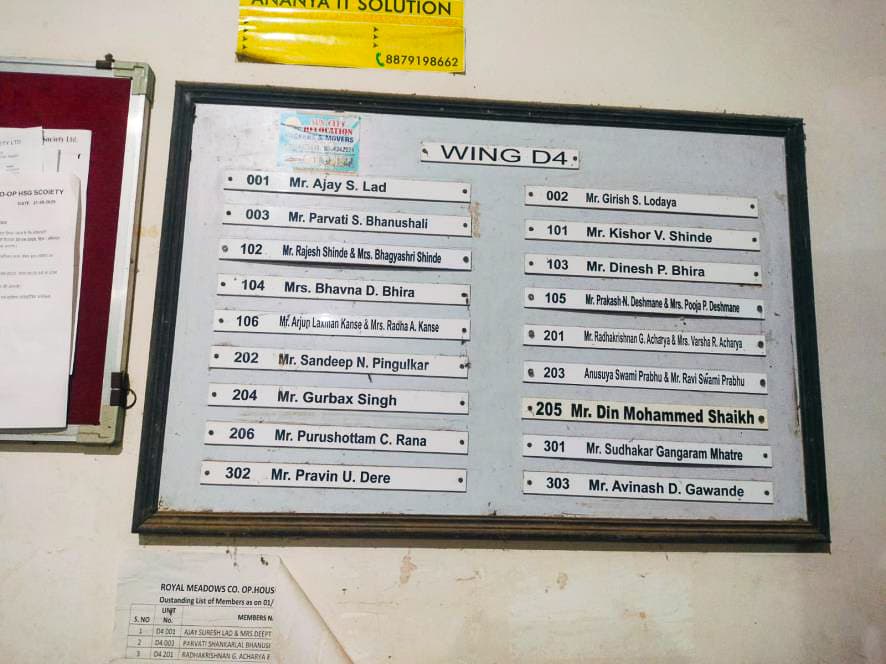 ANANYA IT SOLUTION
8879198662
SUN CITY
RELOCATION
PACKERS & MOVERS
WING D4
001 Mr. Ajay S. Lad
002 Mr. Girish S. Lodaya
003 Mr. Parvati S. Bhanushali
101 Mr. Kishor V. Shinde
102 Mr. Rajesh Shinde & Mrs. Bhagyashri Shinde
103 Mr. Dinesh P. Bhira
104 Mrs. Bhavna D. Bhira
105 Mr. Prakash N. Deshmane & Mrs. Pooja P. Deshmane
106 Mr. Arjun Laxman Kanse & Mrs. Radha A. Kanse
201 Mr. Radhakrishnan G. Acharya & Mrs. Varsha R. Acharya
202 Mr. Sandeep N. Pingulkar
203 Anusuya Swami Prabhu & Mr. Ravi Swami Prabhu
204 Mr. Gurbax Singh
205 Mr. Din Mohammed Shaikh
206 Mr. Purushottam C. Rana
301 Mr. Sudhakar Gangaram Mhatre
302 Mr. Pravin U. Dere
303 Mr. Avinash D. Gawande
ETY LTD
Society Ltd.
O-OP HSG SCOIETY
DATE
ROYAL MEADOWS CO. OP.HOUS
Oustanding List of Members as on 01/
S. NO UNIT No. MEMBERS NA
1 D4 001 AJAY SURESH LAD & MRS DEEPT
2 D4 003 PARVATI SHANKARLAL BHANUSH
3 D4 201 RADHAKRISHNAN G. ACHARYA &